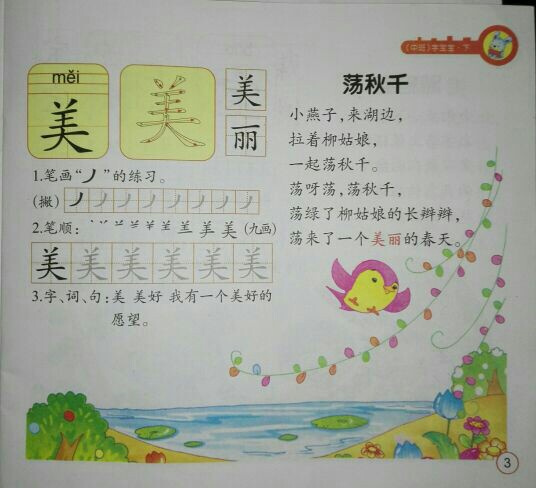 《中班》字宝宝·下
měi
美
美
美
丽
1.笔画“丿”的练习。
(撇) 丿丿丿丿丿丿丿丿
2.笔顺: (九画)
美美美美美美
3.字、词、句:美 美好 我有一个美好的
愿望。
荡秋千
小燕子,来湖边,
拉着柳姑娘,
一起荡秋千。
荡呀荡,荡秋千,
荡绿了柳姑娘的长辫辫,
荡来了一个美丽的春天。
3